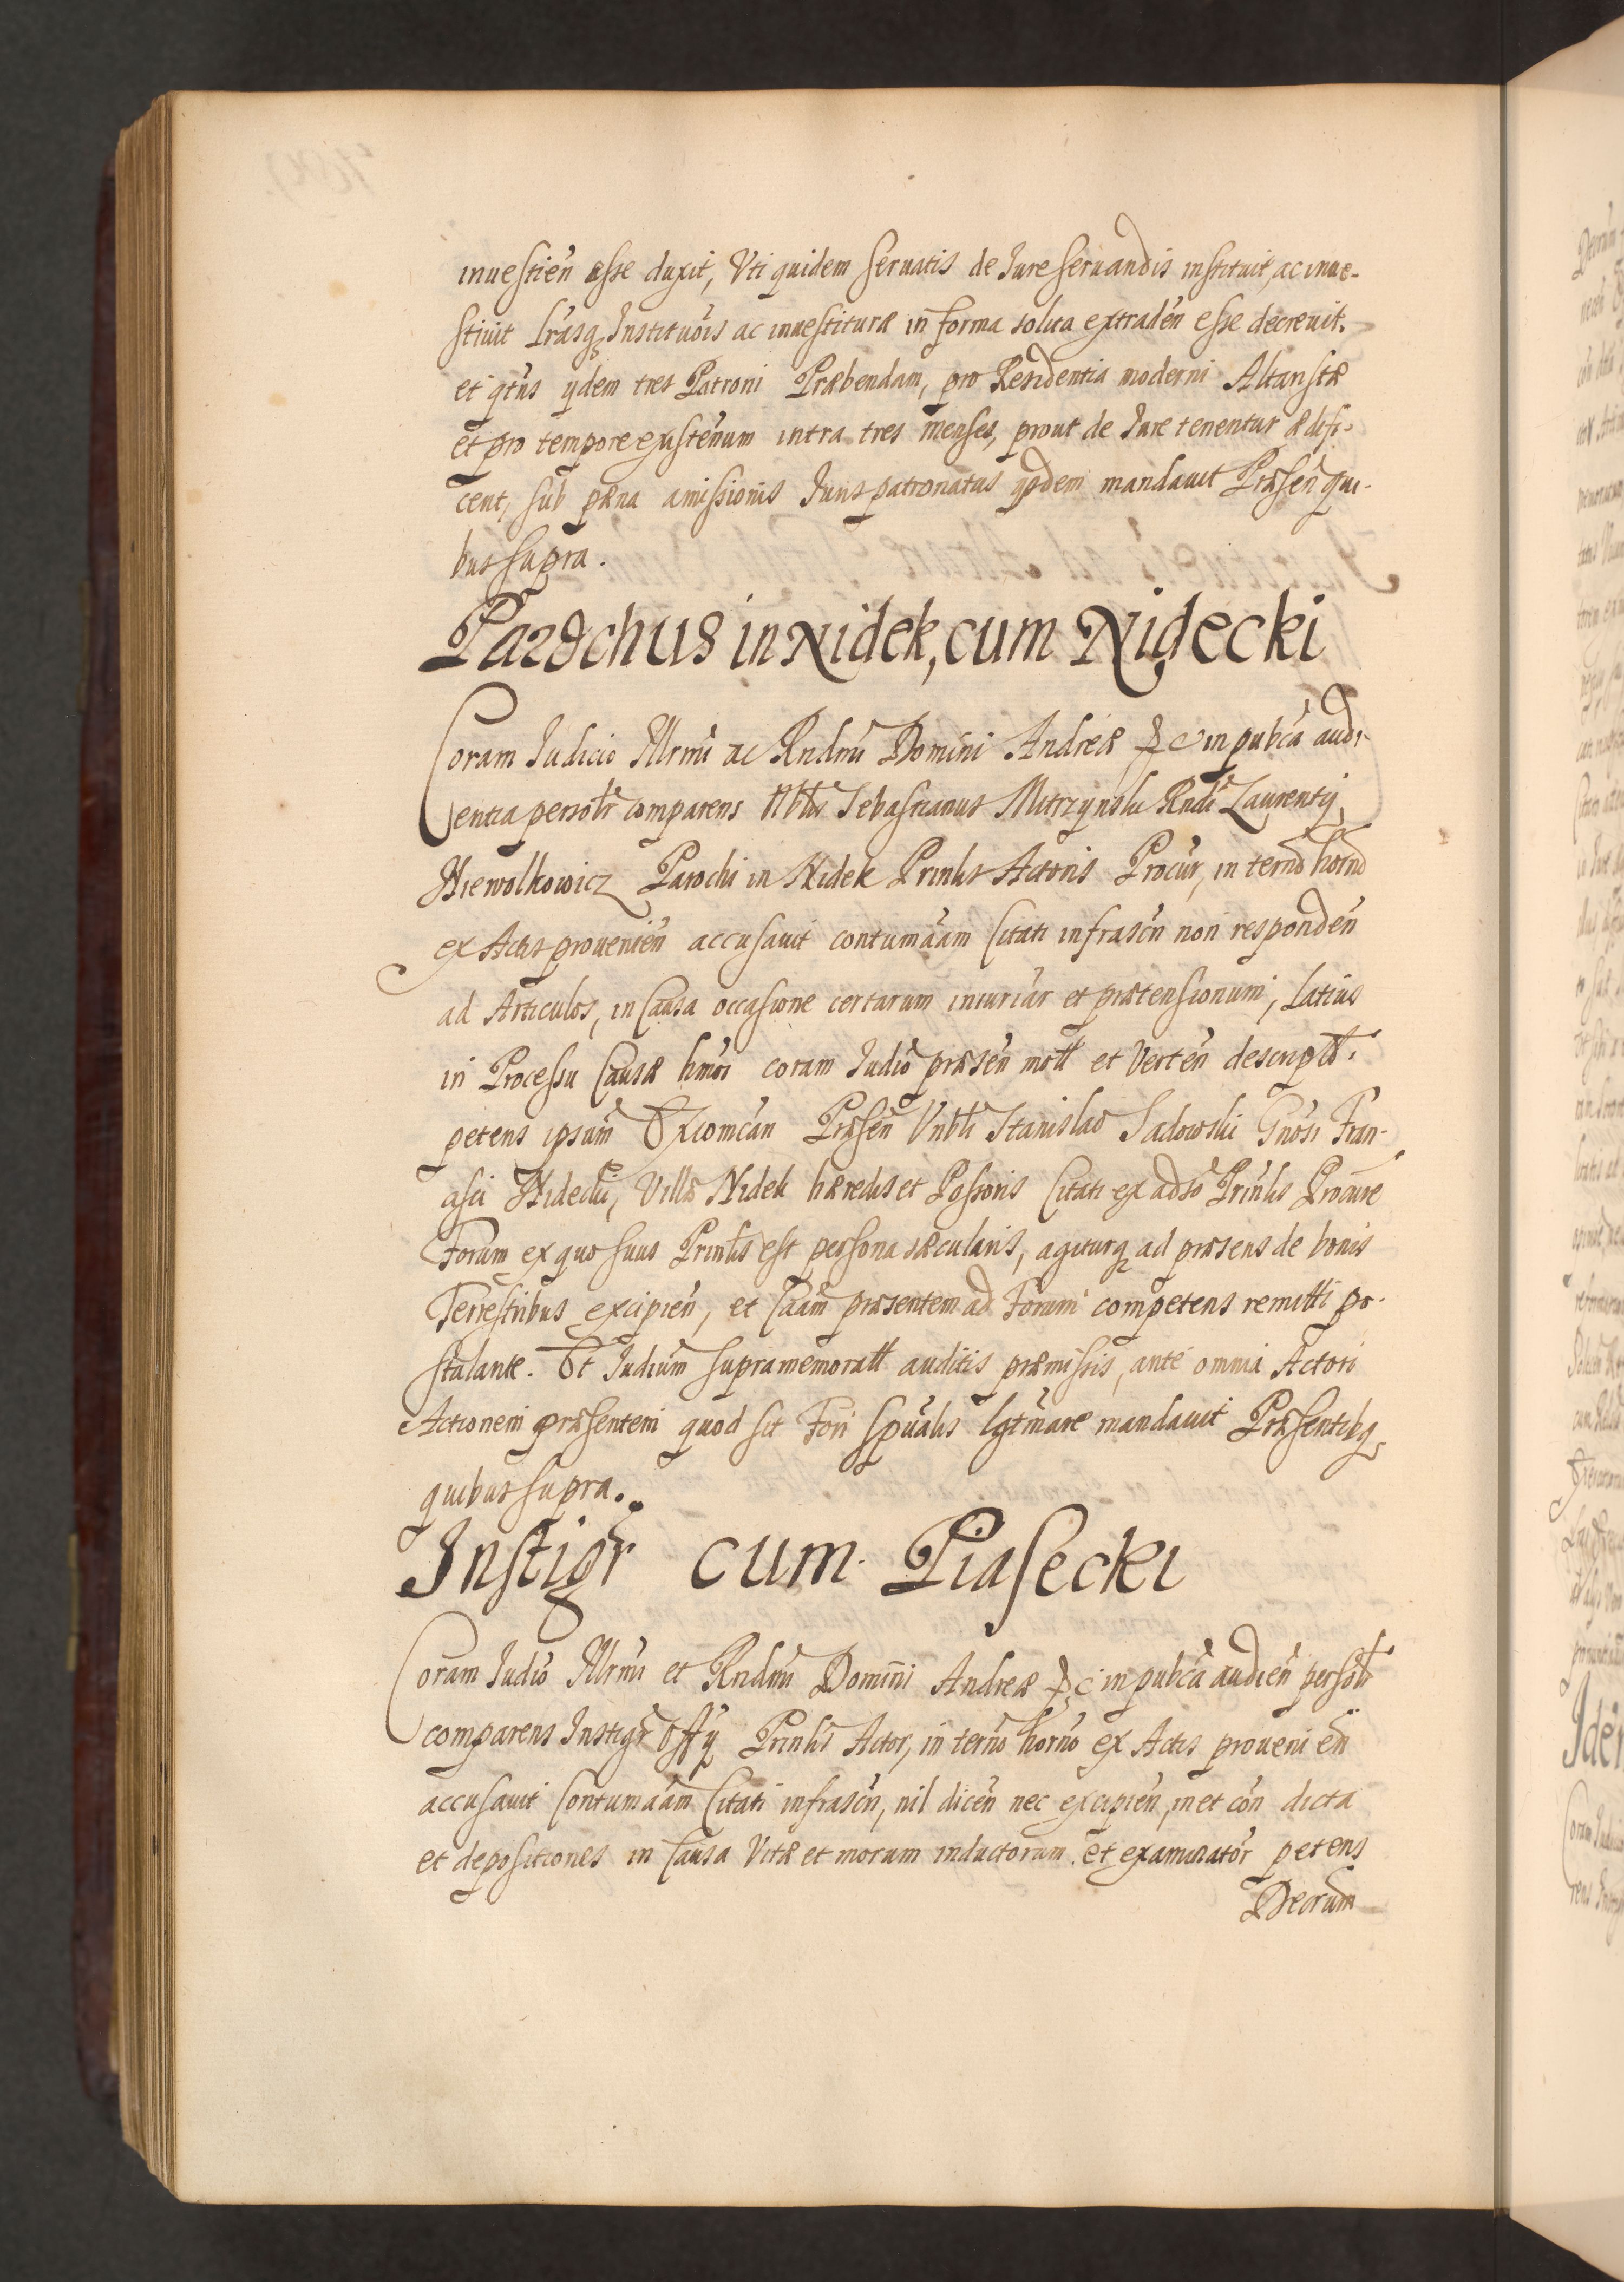 inuestień esse duxit, Vti quidem seruatis de Iure seruandis instituit, ac inue-
stiuit Lrasq. Institu̇ois ac inuestituræ in forma solita extradeń esse decreuit.
et q̇tus ijdem tres Patroni Præbendam, pro Residentia moderni Altaristæ
et pro tempore existeńum intra tres menses, prout de Iure tenentur ædifi-
cent, sub pæna amissionis Iuris patronatus ijsdem mandauit Præseń qui-
bus supra.
Parochus in Nidek, cum Nidecki
Coram Iudicio Illrmi ac Rndmi Domini Andreæ &c in pubca audi-
entia persolr comparens Nblis Sebastianus Mitrzynski Rndi Laurentij
Niewolkowicz Parochi in Nidek Prinlis Actoris Procur, in terno horno
ex Actis prouenień accusauit contumaam Citati infrascń non respondeń
ad Articulos, in Causa occasione certarum iniuriar et prætensionum, Latius
in Processu Causæ hmoi coram Iudio præseń mott et Verteń descript.
petens ipsum Excomcan Præseń Vnbli Stanislao Sadowski Gnosi Fran-
cisci Nidecki, Villæ Nidek hæredis et Possoris Citati ex adso Prinlis Procure
Forum ex quo suus Prinlis est persona sæcularis, agiturq ad præsens de bonis
Terrestribus excipień, et Caam præsentem ad Forum competens remitti po-
stulante. Et Iudium supramemoratt auditis præmissis, ante omnia Actori
Actionem præsentem quod sit Fori Spualis lgtmare mandauit Præsentibq
quibus supra.
Instigr cum Piasecki
Coram Iudio Illrmi et Rndmi Domini Andreæ &c in pubca audień persolr
comparens Instigr Offij Prinlis Actor, in terno horno ex Actis proueni eń
accusauit Contumaam Citati infrascń, nil diceń nec excipień, in et coń dicta
et depositiones in Causa Vitæ et morum inductorum et examinator petens
Decrum